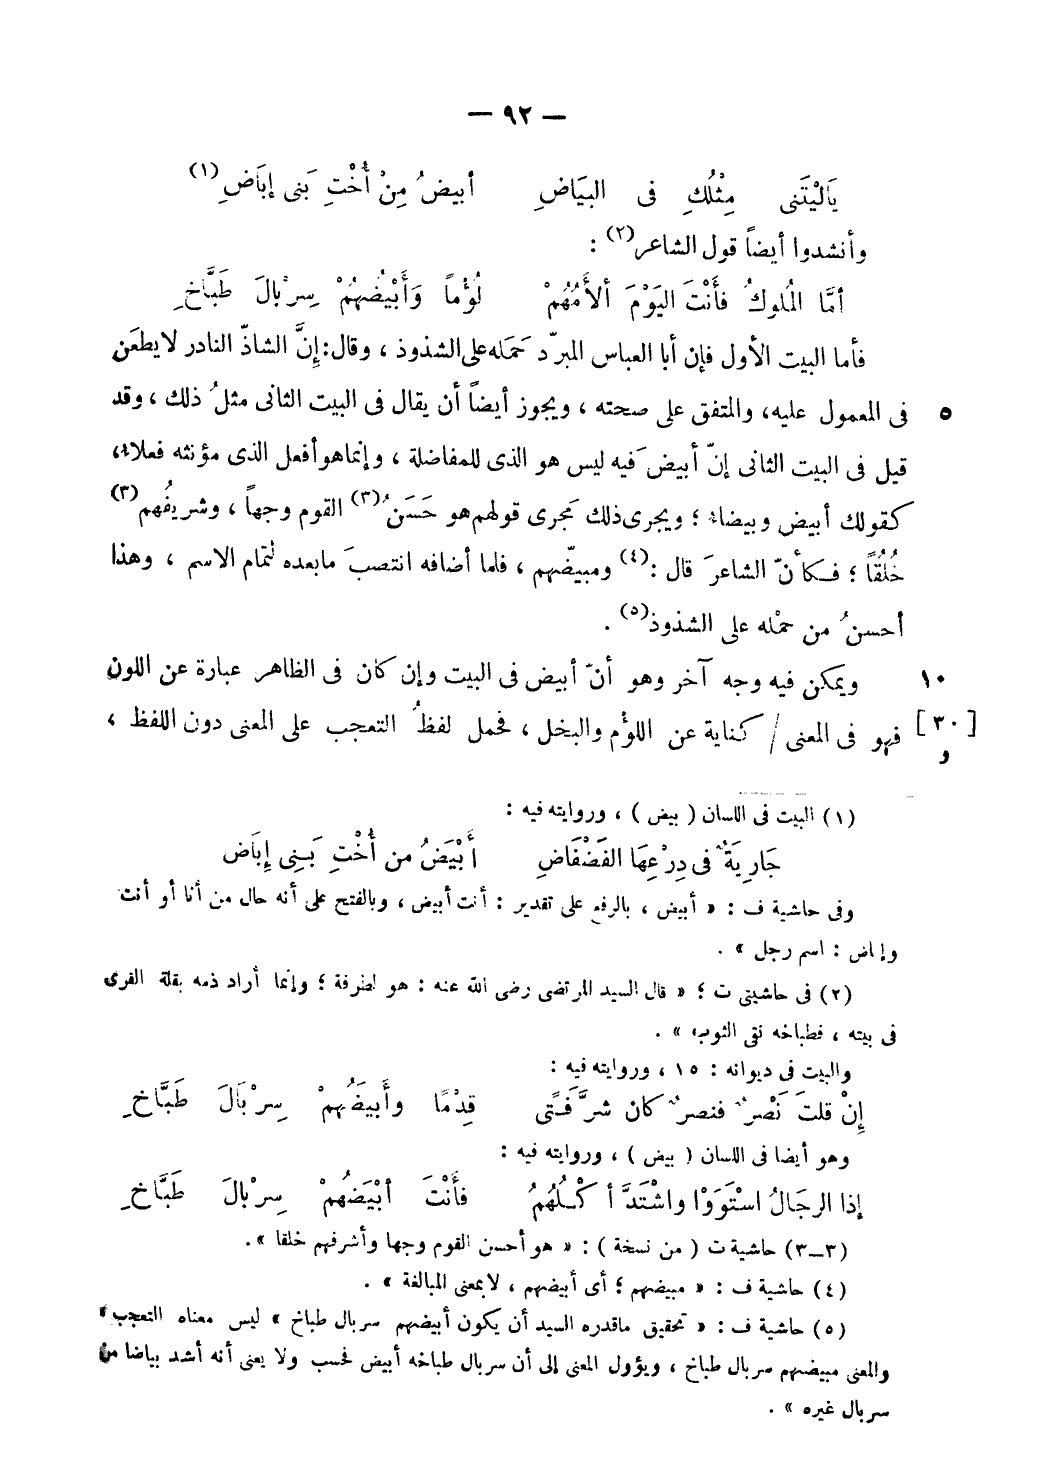 — ٩٢ —
يَالَيْتَنى مِثْلُكِ فى البَيَاضِ أبيضُ مِنْ أُخْتِ بَنى إبَاضِ(١)
وأنشدوا أيضاً قول الشاعر(٢) :
أمَّا المُلوكُ فأَنْتَ اليَوْمَ ألأَمُهُمْ لُؤْماً وَأَبْيضُهُمْ سِرْبالَ طَبَّاخِ
فأما البيت الأول فإن أبا العباس المبرّد حَمَله على الشذوذ ، وقال: إنَّ الشاذّ النادر لا يطعَن
٥ فى المعمول عليه، والمتفق على صحته ، ويجوز أيضاً أن يقال فى البيت الثانى مثلُ ذلك ، وقد
قيل فى البيت الثانى إنّ أبيض فيه ليس هو الذى للمفاضلة ، وإنما هو أفعل الذى مؤنثه فعلاء،
كقولك أبيض وبيضاء ؛ ويجرى ذلك مَجرى قولهم هو حَسَنُ(٣) القوم وجهاً ، وشريفُهم(٣)
خُلُقاً ؛ فكأنّ الشاعرَ قال :(٤) ومبيضّهم ، فلما أضافه انتصبَ ما بعده لتمام الاسم ، وهذا
أحسنُ من حمْله على الشذوذ(٥) .
١٠ ويمكن فيه وجه آخر وهو أنّ أبيض فى البيت وإن كان فى الظاهر عبارة عن اللون
[٣٠ فهو فى المعنى / كناية عن اللؤم والبخل ، فحمل لفظُ التعجب على المعنى دون اللفظ ،
و]
(١) البيت فى اللسان ( بيض ) ، وروايته فيه :
جَارِيَةٌ فى دِرْعِهَا الفَضْفَاضِ أَبْيَضُ من أُخْتِ بَنِى إِبَاضِ
وفى حاشية ف : « أبيض ، بالرفع على تقدير : أنت أبيض ، وبالفتح على أنه حال من أنا أو أنت
وإباض : اسم رجل » .
(٢) فى حاشيتى ت ؛ « قال السيد المرتضى رضى الله عنه : هو لطرفة ؛ وإنما أراد ذمه بقلة القرى
فى بيته ، فطباخه نقى الثوب » .
والبيت فى ديوانه : ١٥ ، وروايته فيه :
إِنْ قلتَ نَصْرٌ فنصرٌ كان شرَّ فَتًى قِدْمًا وأَبيَضُهمْ سِرْبَالَ طَبَّاخِ
وهو أيضا فى اللسان ( بيض ) ، وروايته فيه :
إذا الرجَالُ اسْتَوَوْا واشْتَدَّ أكْلُهُمُ فأَنْتَ أبْيَضُهمْ سِرْبالَ طَبَّاخِ
(٣—٣) حاشية ت ( من نسخة ) : « هو أحسن القوم وجها وأشرفهم خلقا » .
(٤) حاشية ف : « مبيضهم ؛ أى أبيضهم ، لا بمعنى المبالغة » .
(٥) حاشية ف : « تحقيق ما قدره السيد أن يكون أبيضهم سربال طباخ » ليس معناه التعجب،
والمعنى مبيضهم سربال طباخ ، ويؤول المعنى إلى أن سربال طباخه أبيض فحسب ولا يعنى أنه أشد بياضا من
سربال غيره » .